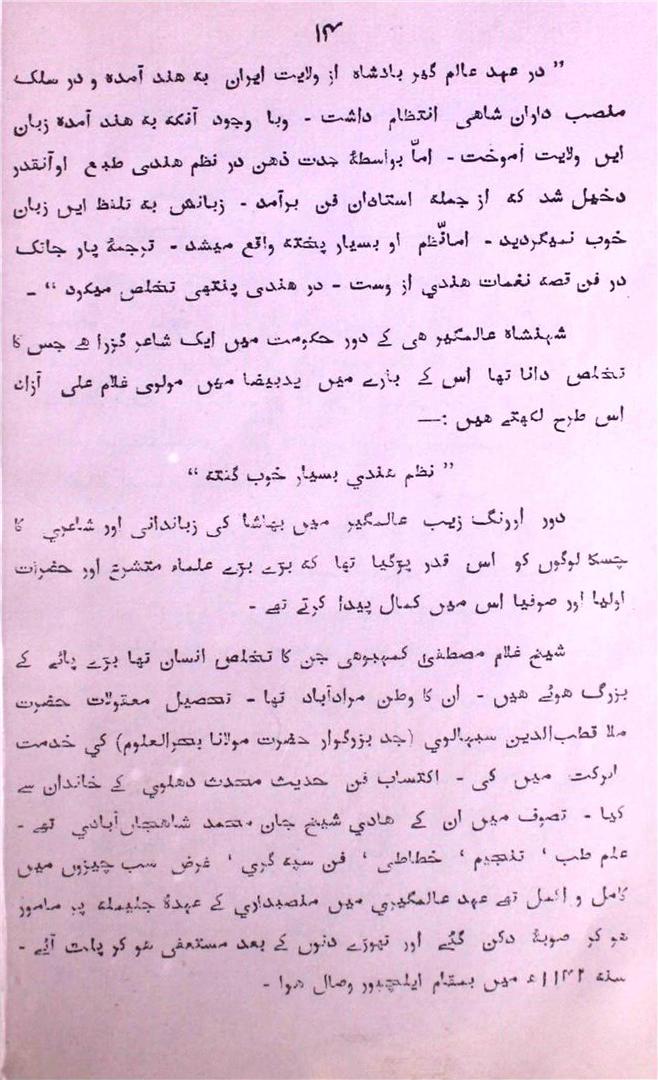 ۱۴
” در عہد عالم گیر بادشاہ از ولایت ایران بہ ھند آمدہ و در سلک
منصب داران شاھی انتظام داشت - وبا وجود آنکہ بہ ھند آمدہ زبان
ایں ولایت آموخت - امّا بواسطۂ جدت ذھن در نظم ھندی طبع اوآنقدر
دخیل شد کہ از جملہ استادان فن برآمد - زبانش بہ تلفظ ایں زبان
خوب نمیگردید - امانظم او بسیار پختہ واقع میشد - ترجمۂ پار جاتک
در فن قصہ نغمات ھندی از وست - در ھندی پنتھی تخلص میکود “ -
شہنشاہ عالمگیر ھی کے دور حکومت میں ایک شاعر گزرا ھے جس کا
تخلص دانا تھا اس کے بارے میں یدبیضا میں مولوی غلام علی آزاد
اس طرح لکھتے ھیں :—
” نظم ھندی بسیار خوب گفتہ “
دور اورنگ زیب عالمگیر میں بھاشا کی زباندانی اور شاعری کا
چسکا لوگوں کو اس قدر پڑگیا تھا کہ بڑے بڑے علماء متشرع اور حضرات
اولیا اور صوفیا اس میں کمال پیدا کرتے تھے -
شیخ غلام مصطفیٰ کمبوھی جن کا تخلص انسان تھا بڑے پائے کے
بزرگ ھوئے ھیں - ان کا وطن مرادآباد تھا - تحصیل معقولات حضرت
ملا قطب‌الدین سہالوی (جد بزرگوار حضرت مولانا بحرالعلوم) کی خدمت
ابرکت میں کی - اکتساب فن حدیث محدث دھلوی کے خاندان سے
کیا - تصوف میں ان کے ھادی شیخ جان محمد شاھجہاں‌آبادی تھے -
علم طب ‘ تنجیم ‘ خطاطی ‘ فن سپہ گری ‘ غرض سب چیزوں میں
کامل و اکمل تھے عہد عالمگیری میں منصبداری کے عہدۂ جلیلہ پر مامور
ھو کر صوبۂ دکن گئے اور تھوڑے دنوں کے بعد مستعفی ھو کر پلٹ آئے -
سنہ ۱۱۴۲ء میں بمقام ایلچپور وصال ھوا -